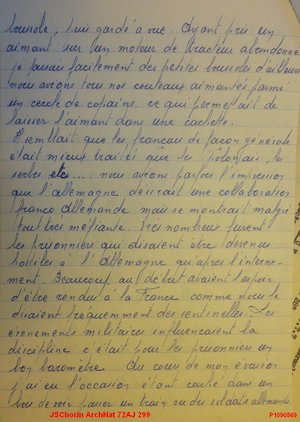 boussole, puis gardé à vue. Ayant pris un
aimant sur un moteur de tracteur abandonné
je faisais facilement des petites boussoles d'ailleurs
nous avions tous nos couteaux aimantés parmi
un cercle de copains. ce qui permettait de
laisser l'aimant dans une cachette.
Il semblait que les français de façon générale
était mieux traités que les polonais, les
serbes etc .... nous avions parfois l'impression
que l'allemagne désirait une collaboration
franco allemande mais se montrait malgré
tout très méfiante. Très nombreux furent
les prisonniers qui disaient être devenus
hostiles à l'Allemagne qu'après l'interne-
ment. Beaucoup au début avaient l'espoir
d'être rendus à la France comme nous le
disaient fréquemment des sentinelles. Les
évènements militaires influencaient la
discipline c'était pour les prisonniers un
bon baromètre. Au cours de mon évasion
j'ai eu l'occasion étant caché dans un
bois de voir passer un train où des soldats allemands
JSChorin ArchNat 72AJ 299
P1090569